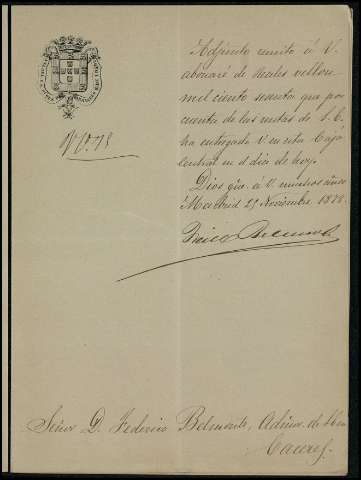 Nº 73
Adjunto remito á V.
abonaré de Reales vellon
mil ciento sesenta que por
cuenta de las rentas de S. E.
ha entregado V en esta Caja
central en el dia de hoy.
Dios gûe á V. muchos años
Madrid 25 Noviembre 1878
Señor D. Federico Belmonte, Admor. de